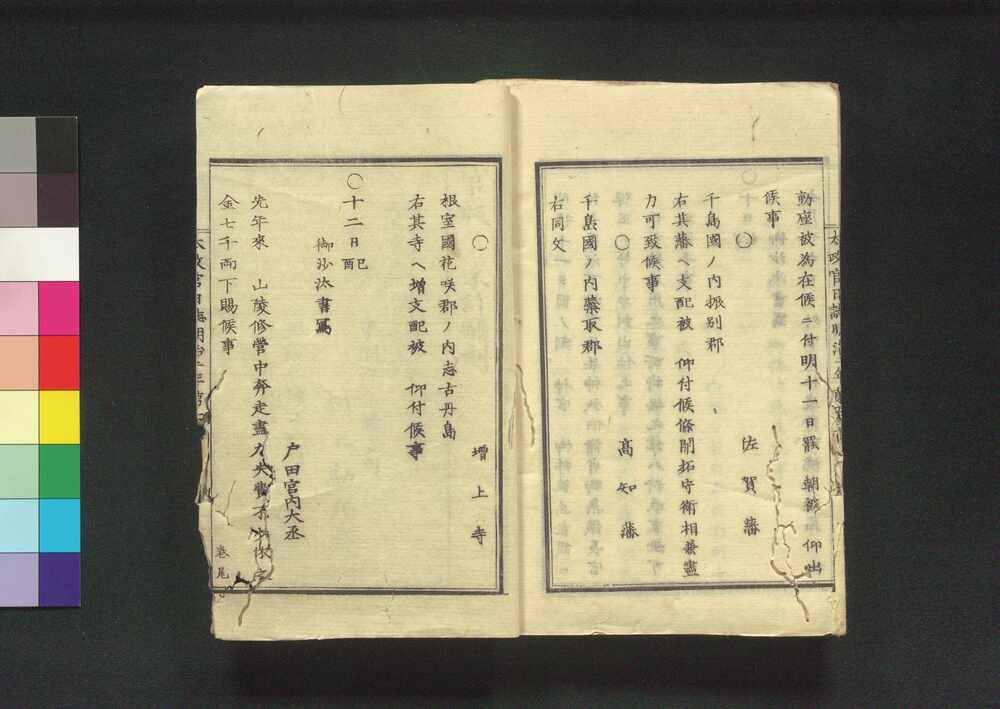 動座被為在候ニ付明十一日罷朝被 仰出
候事
○ 佐賀藩
千島國ノ内振別郡
右其藩ヘ支配被 仰付候條開拓守衛相兼盡
力可致候事
○ 高知藩
千島國ノ内蘂取郡
右同文
○ 增上寺
根室國花咲郡ノ内志古丹島
右其寺ヘ增支配被 仰付候事
○十二日己酉
御沙汰書寫
戸田宮内大丞
先年來 山陵修營中奔走盡力
金七千兩下賜候事
卷尾